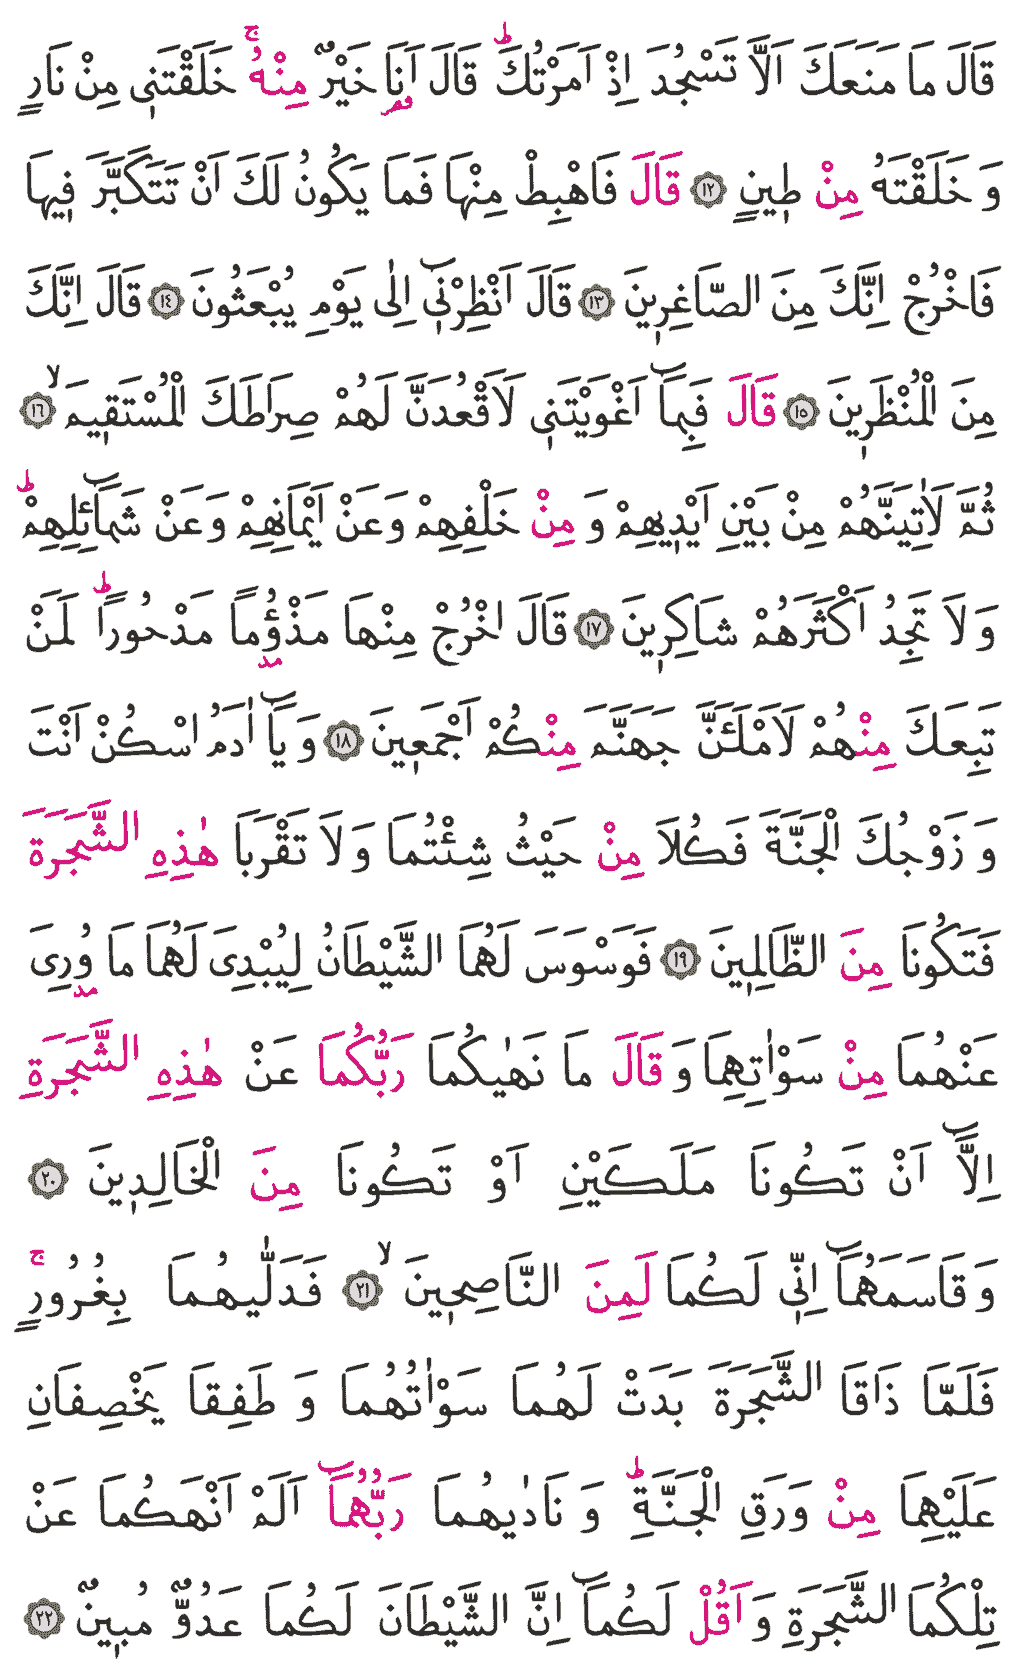 قَالَ مَا مَنَعَكَ اَلَّا تَسْجُدَ اِذْ اَمَرْتُكَۜ قَالَ اَنَا۬ خَيْرٌ مِنْهُۚ خَلَقْتَن۪ي مِنْ نَارٍ
وَ خَلَقْتَهُ مِنْ ط۪ينٍ ﴿١٢﴾ قَالَ فَاهْبِطْ مِنْهَا فَمَا يَكُونُ لَكَ اَنْ تَتَكَبَّرَ ف۪يهَا
فَاخْرُجْ اِنَّكَ مِنَ الصَّاغِر۪ينَ ﴿١٣﴾ قَالَ اَنْظِرْن۪ٓي اِلٰى يَوْمِ يُبْعَثُونَ ﴿١٤﴾ قَالَ اِنَّكَ
مِنَ الْمُنْظَر۪ينَ ﴿١٥﴾ قَالَ فَبِمَٓا اَغْوَيْتَن۪ي لَاَقْعُدَنَّ لَهُمْ صِرَاطَكَ الْمُسْتَق۪يمَۙ ﴿١٦﴾
ثُمَّ لَاٰتِيَنَّهُمْ مِنْ بَيْنِ اَيْد۪يهِمْ وَ مِنْ خَلْفِهِمْ وَعَنْ اَيْمَانِهِمْ وَعَنْ شَمَٓائِلِهِمْۜ
وَ لَا تَجِدُ اَكْثَرَهُمْ شَاكِر۪ينَ ﴿١٧﴾ قَالَ اخْرُجْ مِنْهَا مَذْؤُ۫مًا مَدْحُورًاۜ لَمَنْ
تَبِعَكَ مِنْهُمْ لَاَمْلَـَٔنَّ جَهَنَّمَ مِنْكُمْ اَجْمَع۪ينَ ﴿١٨﴾ وَ يَٓا اٰدَمُ اسْكُنْ اَنْتَ
وَ زَوْجُكَ الْجَنَّةَ فَكُلَا مِنْ حَيْثُ شِئْتُمَا وَ لَا تَقْرَبَا هٰذِهِ الشَّجَرَةَ
فَتَكُونَا مِنَ الظَّالِم۪ينَ ﴿١٩﴾ فَوَسْوَسَ لَهُمَا الشَّيْطَانُ لِيُبْدِيَ لَهُمَا مَا وُ۫رِيَ
عَنْهُمَا مِنْ سَوْاٰتِهِمَا وَ قَالَ مَا نَهٰيكُمَا رَبُّكُمَا عَنْ هٰذِهِ الشَّجَرَةِ
اِلَّٓا اَنْ تَكُونَا مَلَكَيْنِ اَوْ تَكُونَا مِنَ الْخَالِد۪ينَ ﴿٢٠﴾
وَ قَاسَمَهُمَٓا اِنّ۪ي لَكُمَا لَمِنَ النَّاصِح۪ينَۙ ﴿٢١﴾ فَدَلّٰيهُمَا بِغُرُورٍۚ
فَلَمَّا ذَاقَا الشَّجَرَةَ بَدَتْ لَهُمَا سَوْاٰتُهُمَا وَ طَفِقَا يَخْصِفَانِ
عَلَيْهِمَا مِنْ وَرَقِ الْجَنَّةِۜ وَ نَادٰيهُمَا رَبُّهُمَٓا اَلَمْ اَنْهَكُمَا عَنْ
تِلْكُمَا الشَّجَرَةِ وَ اَقُلْ لَكُمَٓا اِنَّ الشَّيْطَانَ لَكُمَا عَدُوٌّ مُب۪ينٌ ﴿٢٢﴾